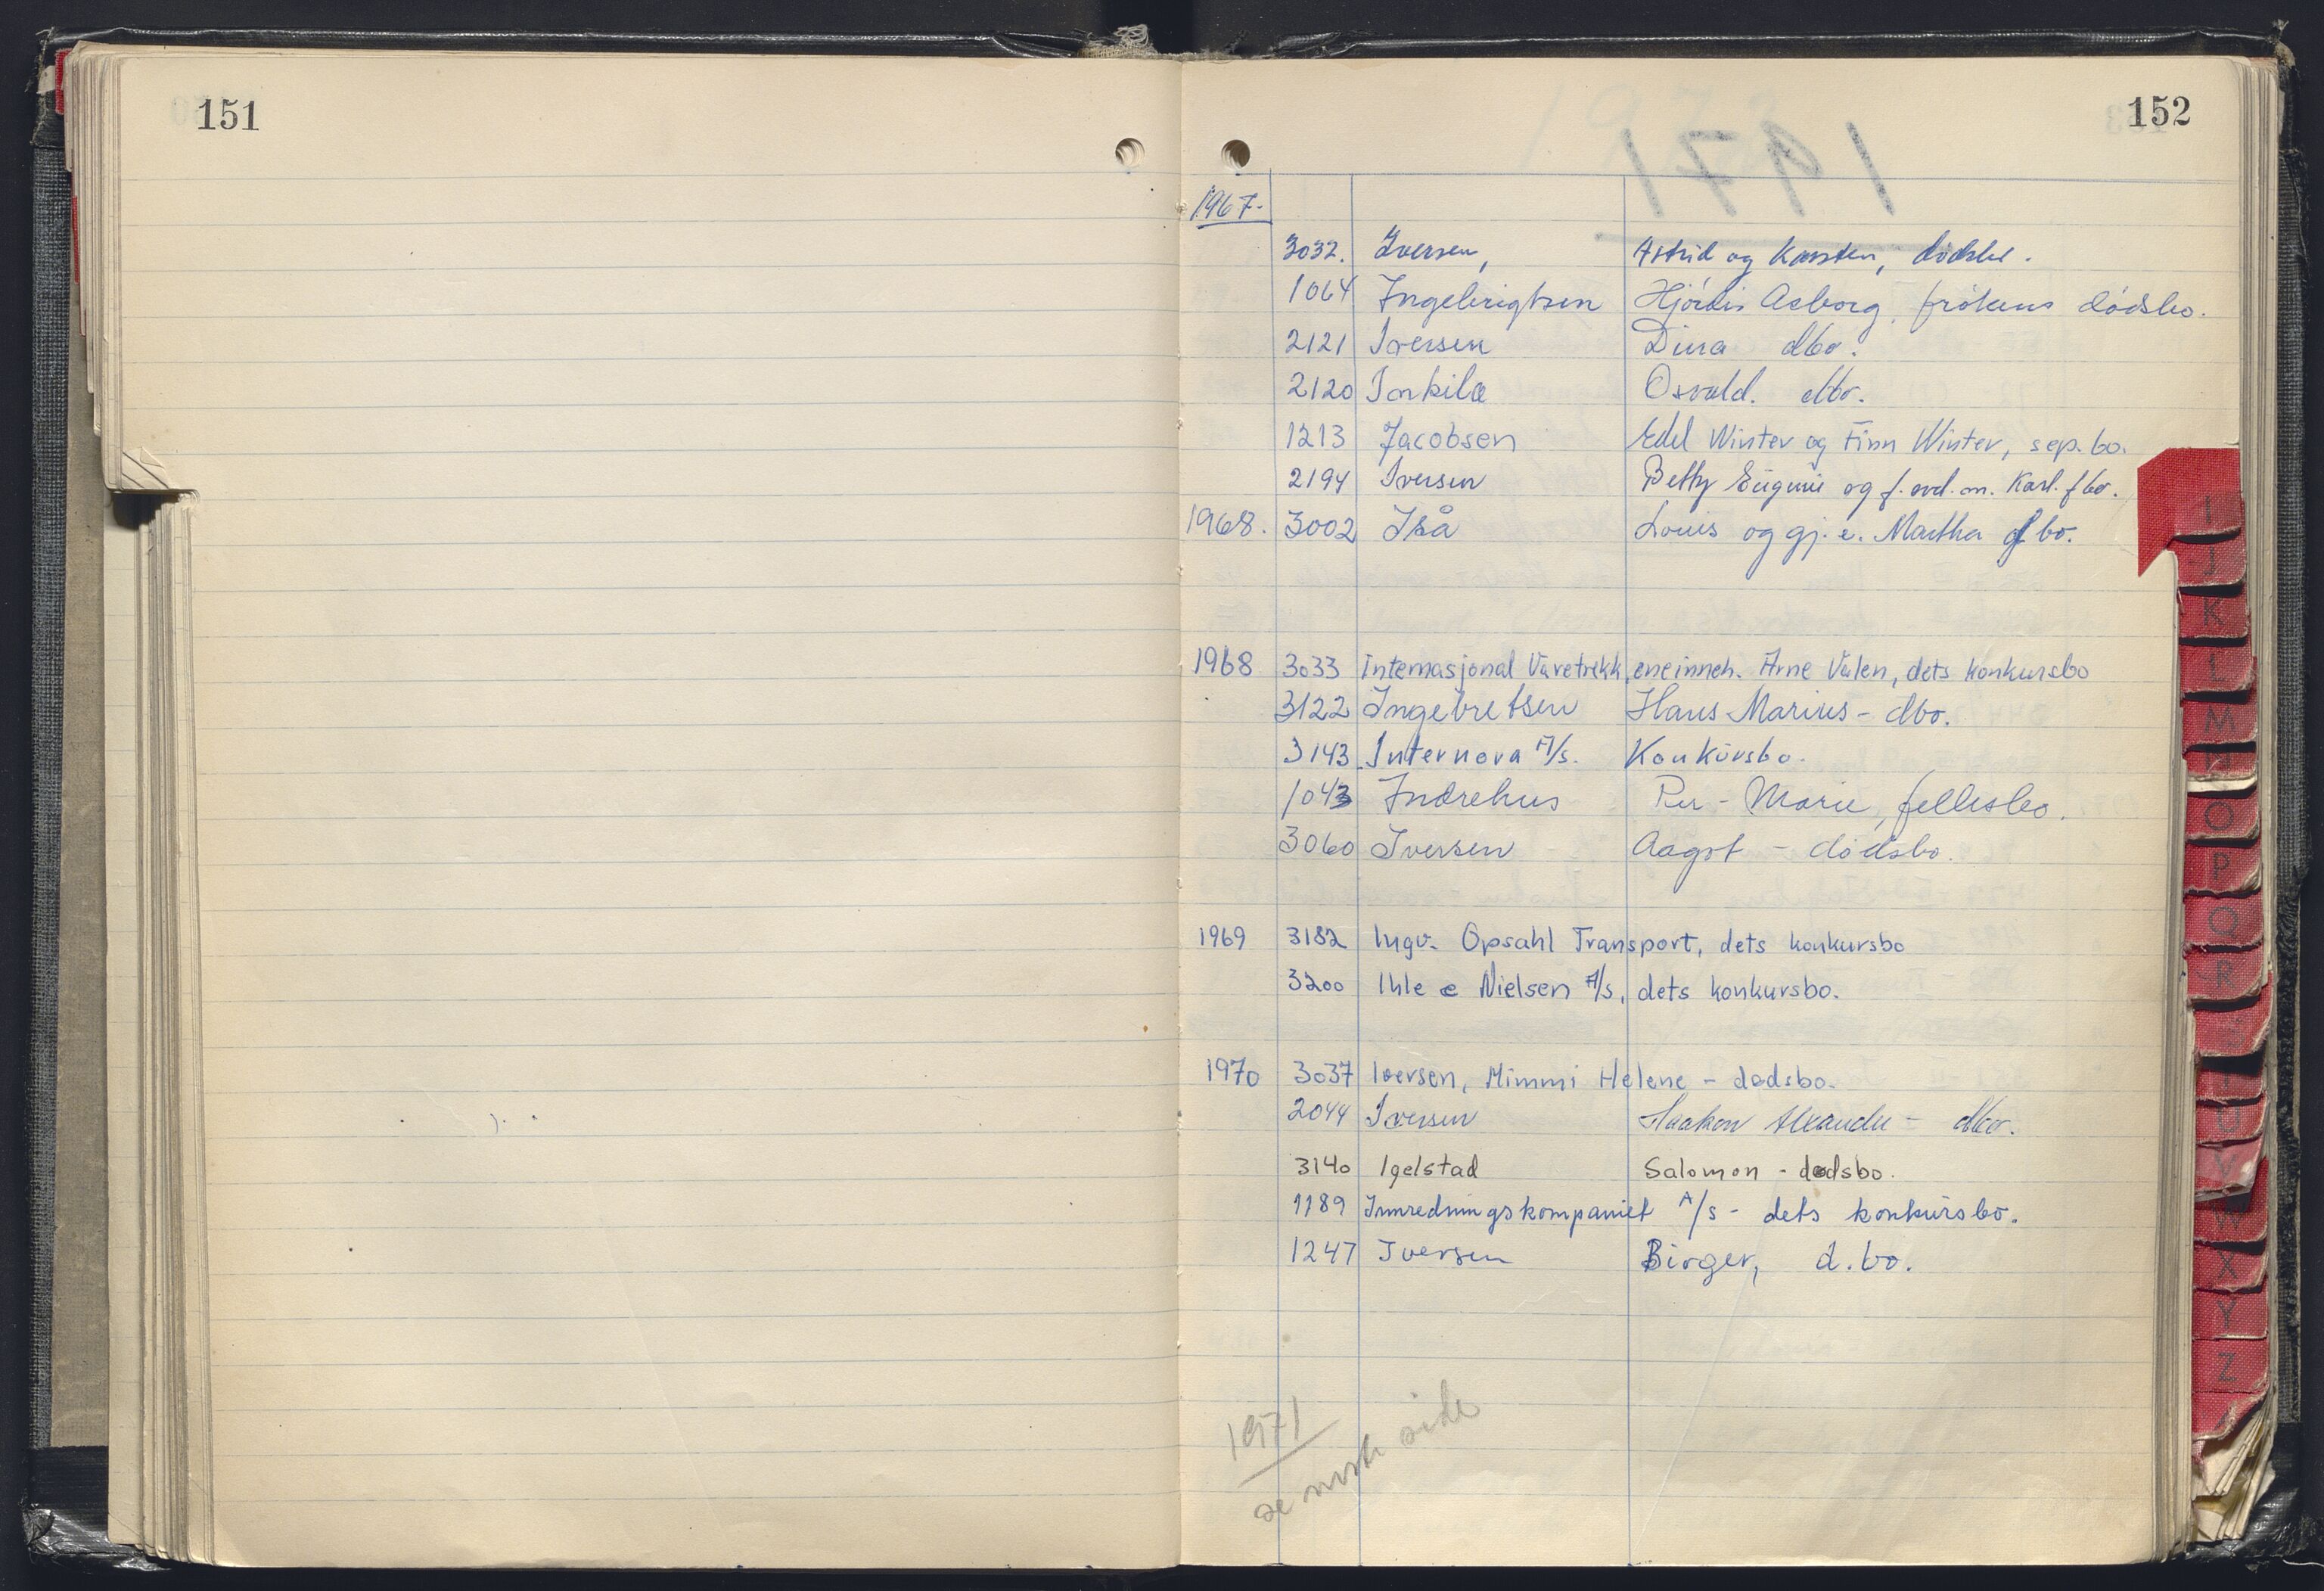 151
152
1967.
3032. Iversen, Astrid og Karsten, dødsbo.
1064 Ingebrigtsen Hjórdis Asborg, frókens dódsbo.
2121 Iversen Dina dbo.
2120 Inkila Osvald. dbo.
1213 Jacobsen Edel Winter og Finn Winter, sep. bo.
2194 Iversen Betty Eugenie og f. avd. m. Karl. f bo.
1968. 3002 Iså Louis og gj. e. Martha f bo.
1968 3033 Internasjonal Varetrekk, eneinneh. Arne Valen, dets konkursbo
3122 Ingebretsen Hans Marius - dbo.
3143 Internova A/s. Konkursbo.
1043 Indrehus Per - Marie, fellesbo.
3060 Iversen Aagot - dødsbo.
1969 3182 Ingv. Opsahl Transport, dets konkursbo
3200 Ihle e Nielsen A/s, dets konkursbo.
1970 3037 Iversen, Mimmi Helene - dødsbo.
2044 Iversen Haakon Alexander - dbo.
3140 Igelstad Salomon - dødsbo.
1189 Innredningskompaniet A/s - dets konkursbo.
1247 Iversen Birger, d. bo.
1971
se neste side
I
J
K
L
M
N
O
P
Q
R
U
V
W
X
Y
Z